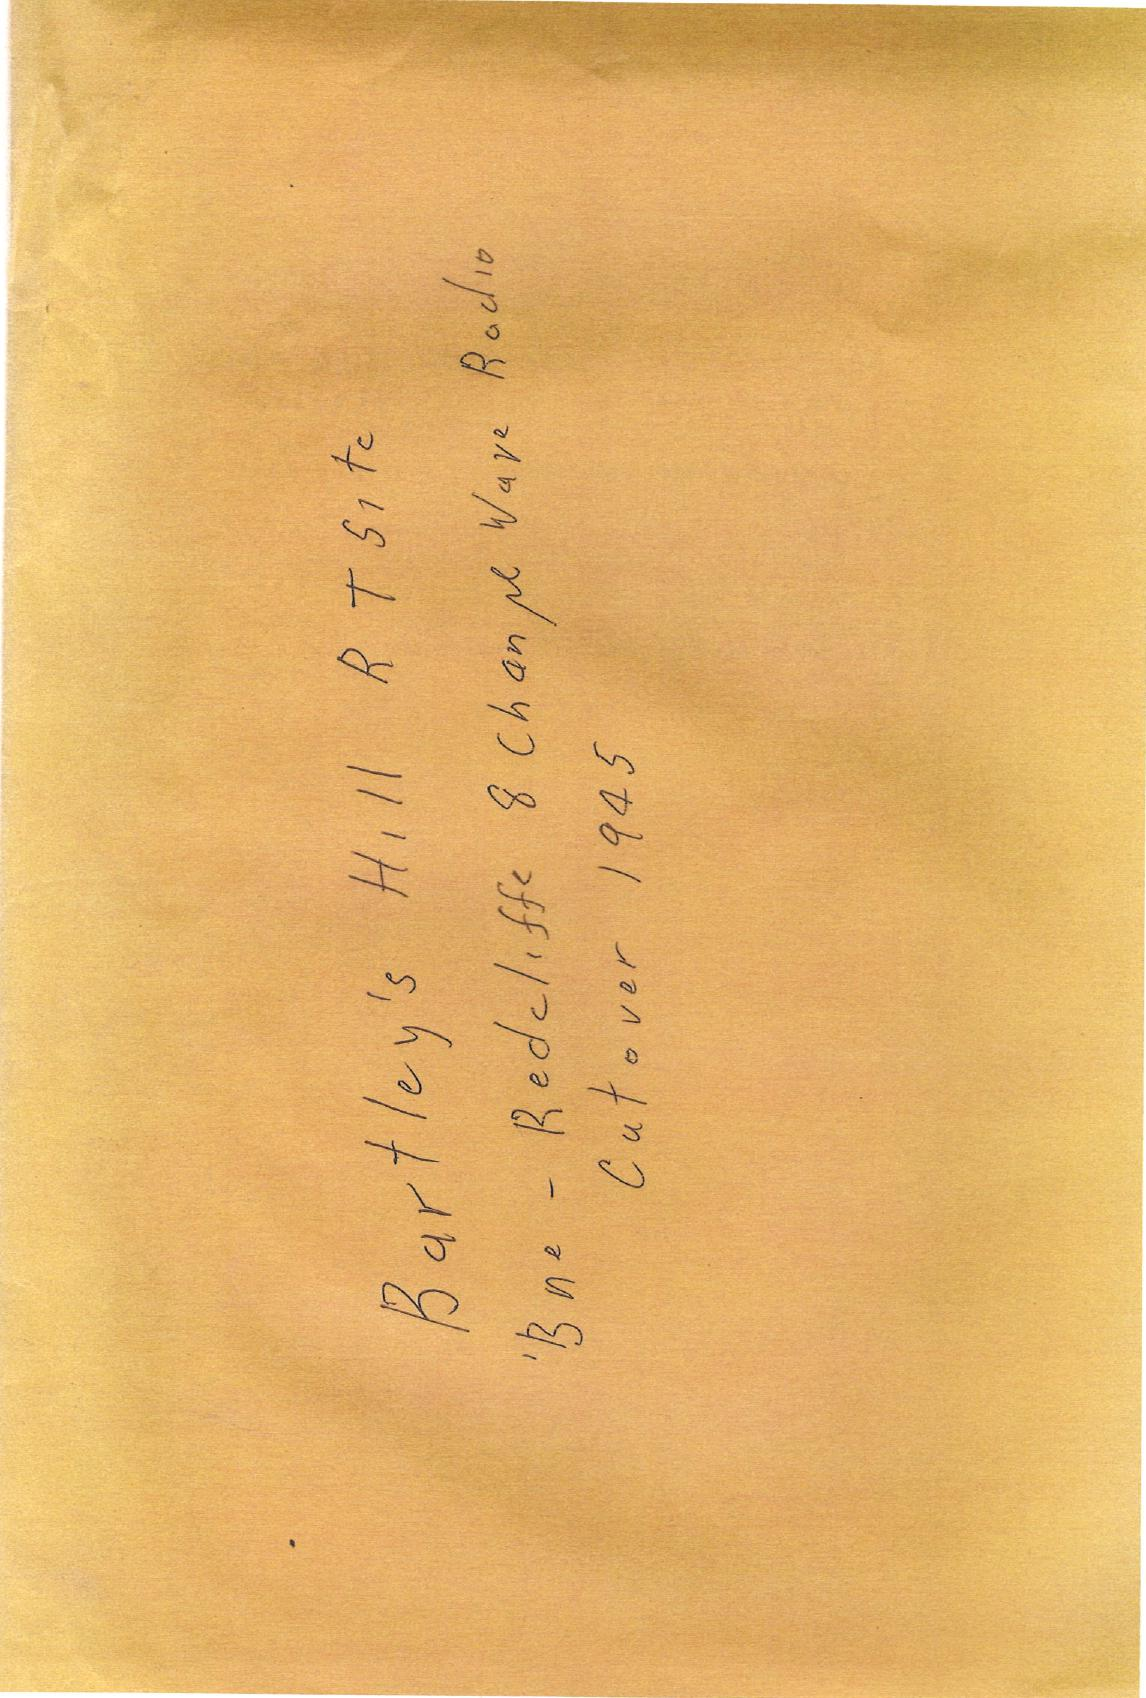 Bartley's Hill R T Site
'Bne - Redcliffe 8 Chanpl Wave Radio
Cutover 1945